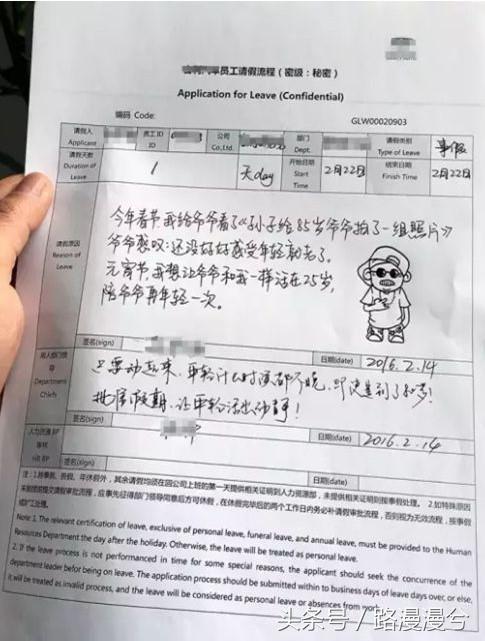 员工请假流程（密级：秘密）
Application for Leave (Confidential)
编码 Code: GLW00020903
请假人 Applicant 员工ID ID 公司 Co,Ltd. 部门 Dept. 请假类别 Type of Leave 事假
请假天数 Duration of Leave 1 天day 开始日期 Start Time 2月22日 结束日期 Finish Time 2月22日
请假原因 Reason of Leave
今年春节我给爷爷看了《孙子给85岁爷爷拍了一组照片》
爷爷感叹:还没好好感受年轻就老了。
元宵节,我想让爷爷和我一样活在25岁,
陪爷爷再年轻一次。
签名(sign) 日期(date) 2016.2.14
用人部门领导 Department Chiefs
只要动起来、年轻什么时候都不晚、即使是到了85岁!
批准假期、让年轻活出动静!
签名(sign) 日期(date) 2016.2.14
人力资源BP审核 HR BP
注：1.除事假、丧假、年休假外，其余请假均须在回公司上班的第一天提供相关证明到人力资源部，未提供相关证明则按事假处理。 2.如特殊原因
未能按规定提交请假审批流程，应事先征得部门领导同意后方可休假，在休假完毕后的两个工作日内务必补请假审批流程，否则视为无效流程，按事假
或旷工处理。
Note: 1. The relevant certification of leave, exclusive of personal leave, funeral leave, and annual leave, must be provided to the Human
Resources Department the day after the holiday. Otherwise, the leave will be treated as personal leave.
2. If the leave process is not performanced in time for some special reasons, the applicant should seek the concurrence of the
department leader befor being on leave. The application process should be submitted within to business days of leave days over, or else,
it will be treated as invalid process, and the leave will be considered as personal leave or absences from work.
头条号／路漫漫兮